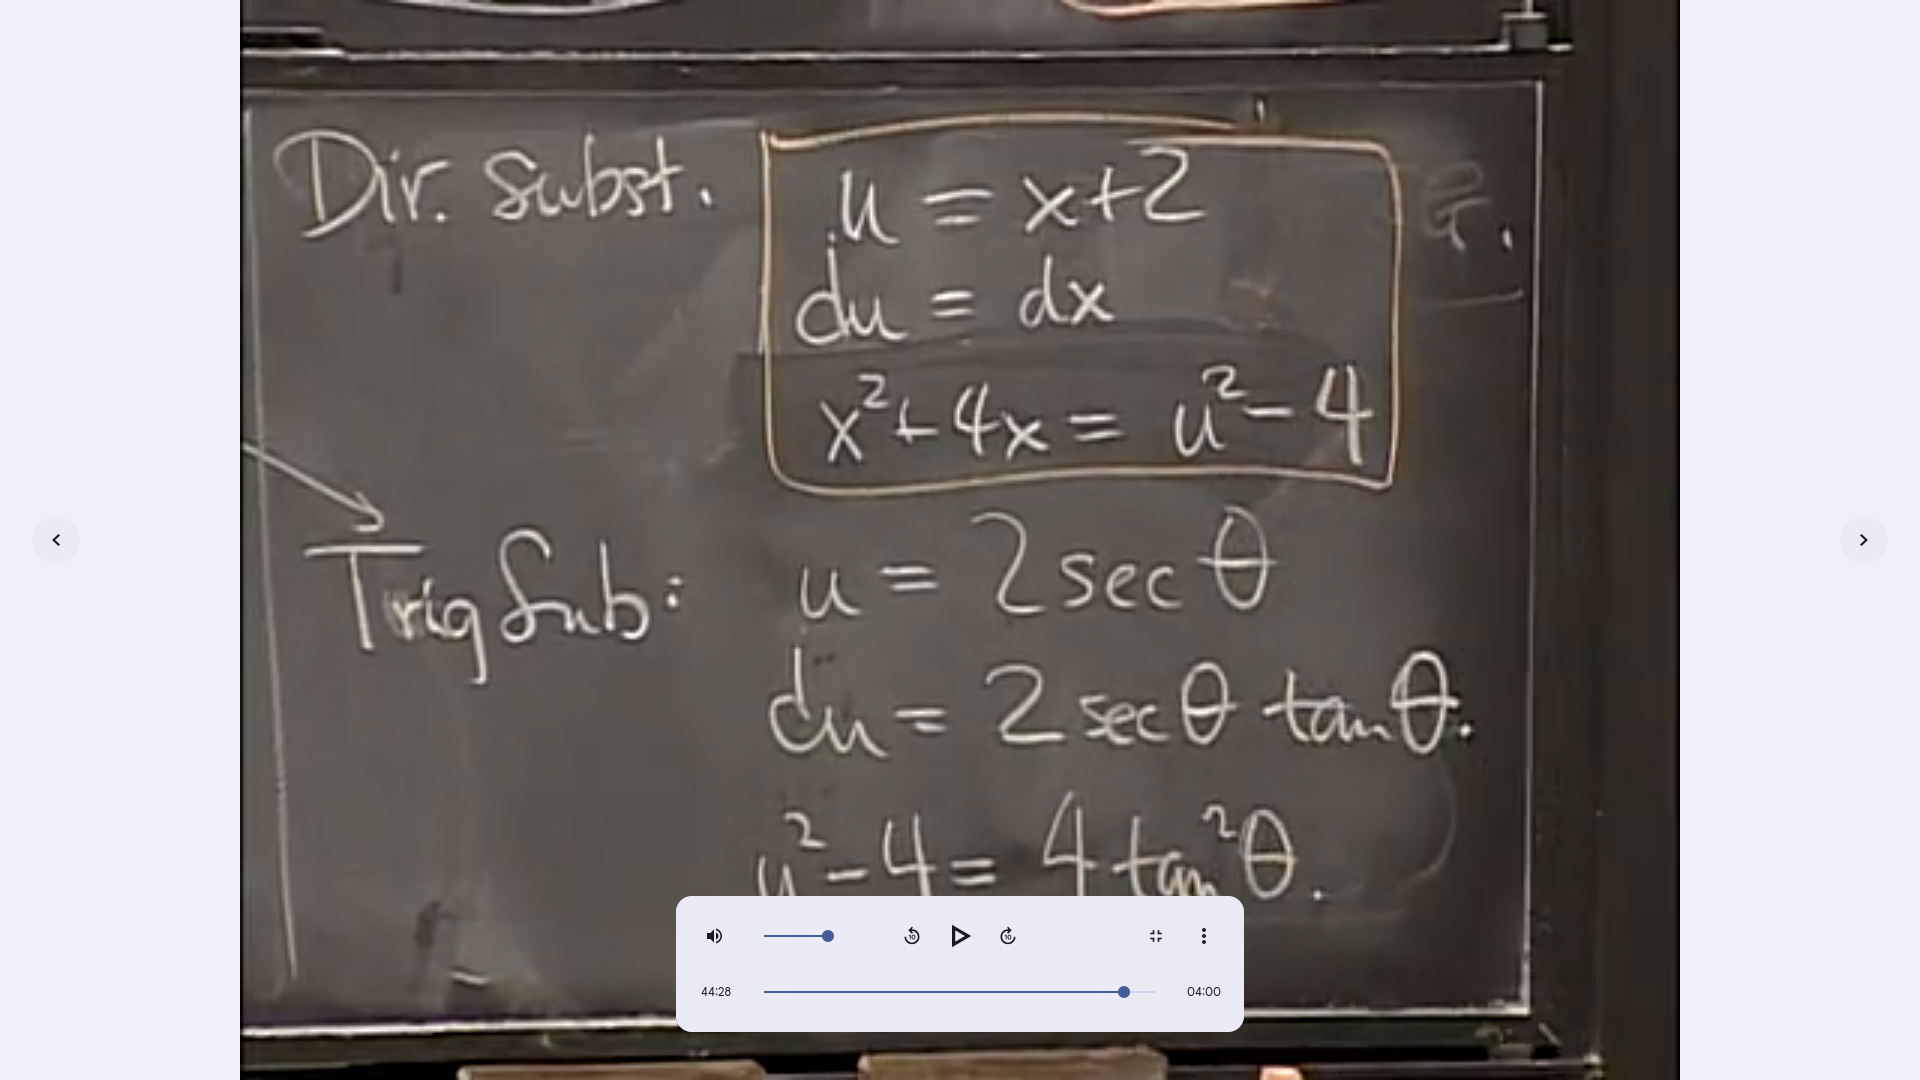 Dir. Subst.
u = x+2
du = dx
x²+4x = u²-4
Trig Sub:
u = 2 sec θ
du = 2 sec θ tan θ.
u²-4 = 4 tan²θ.
10
10
44:28
04:00